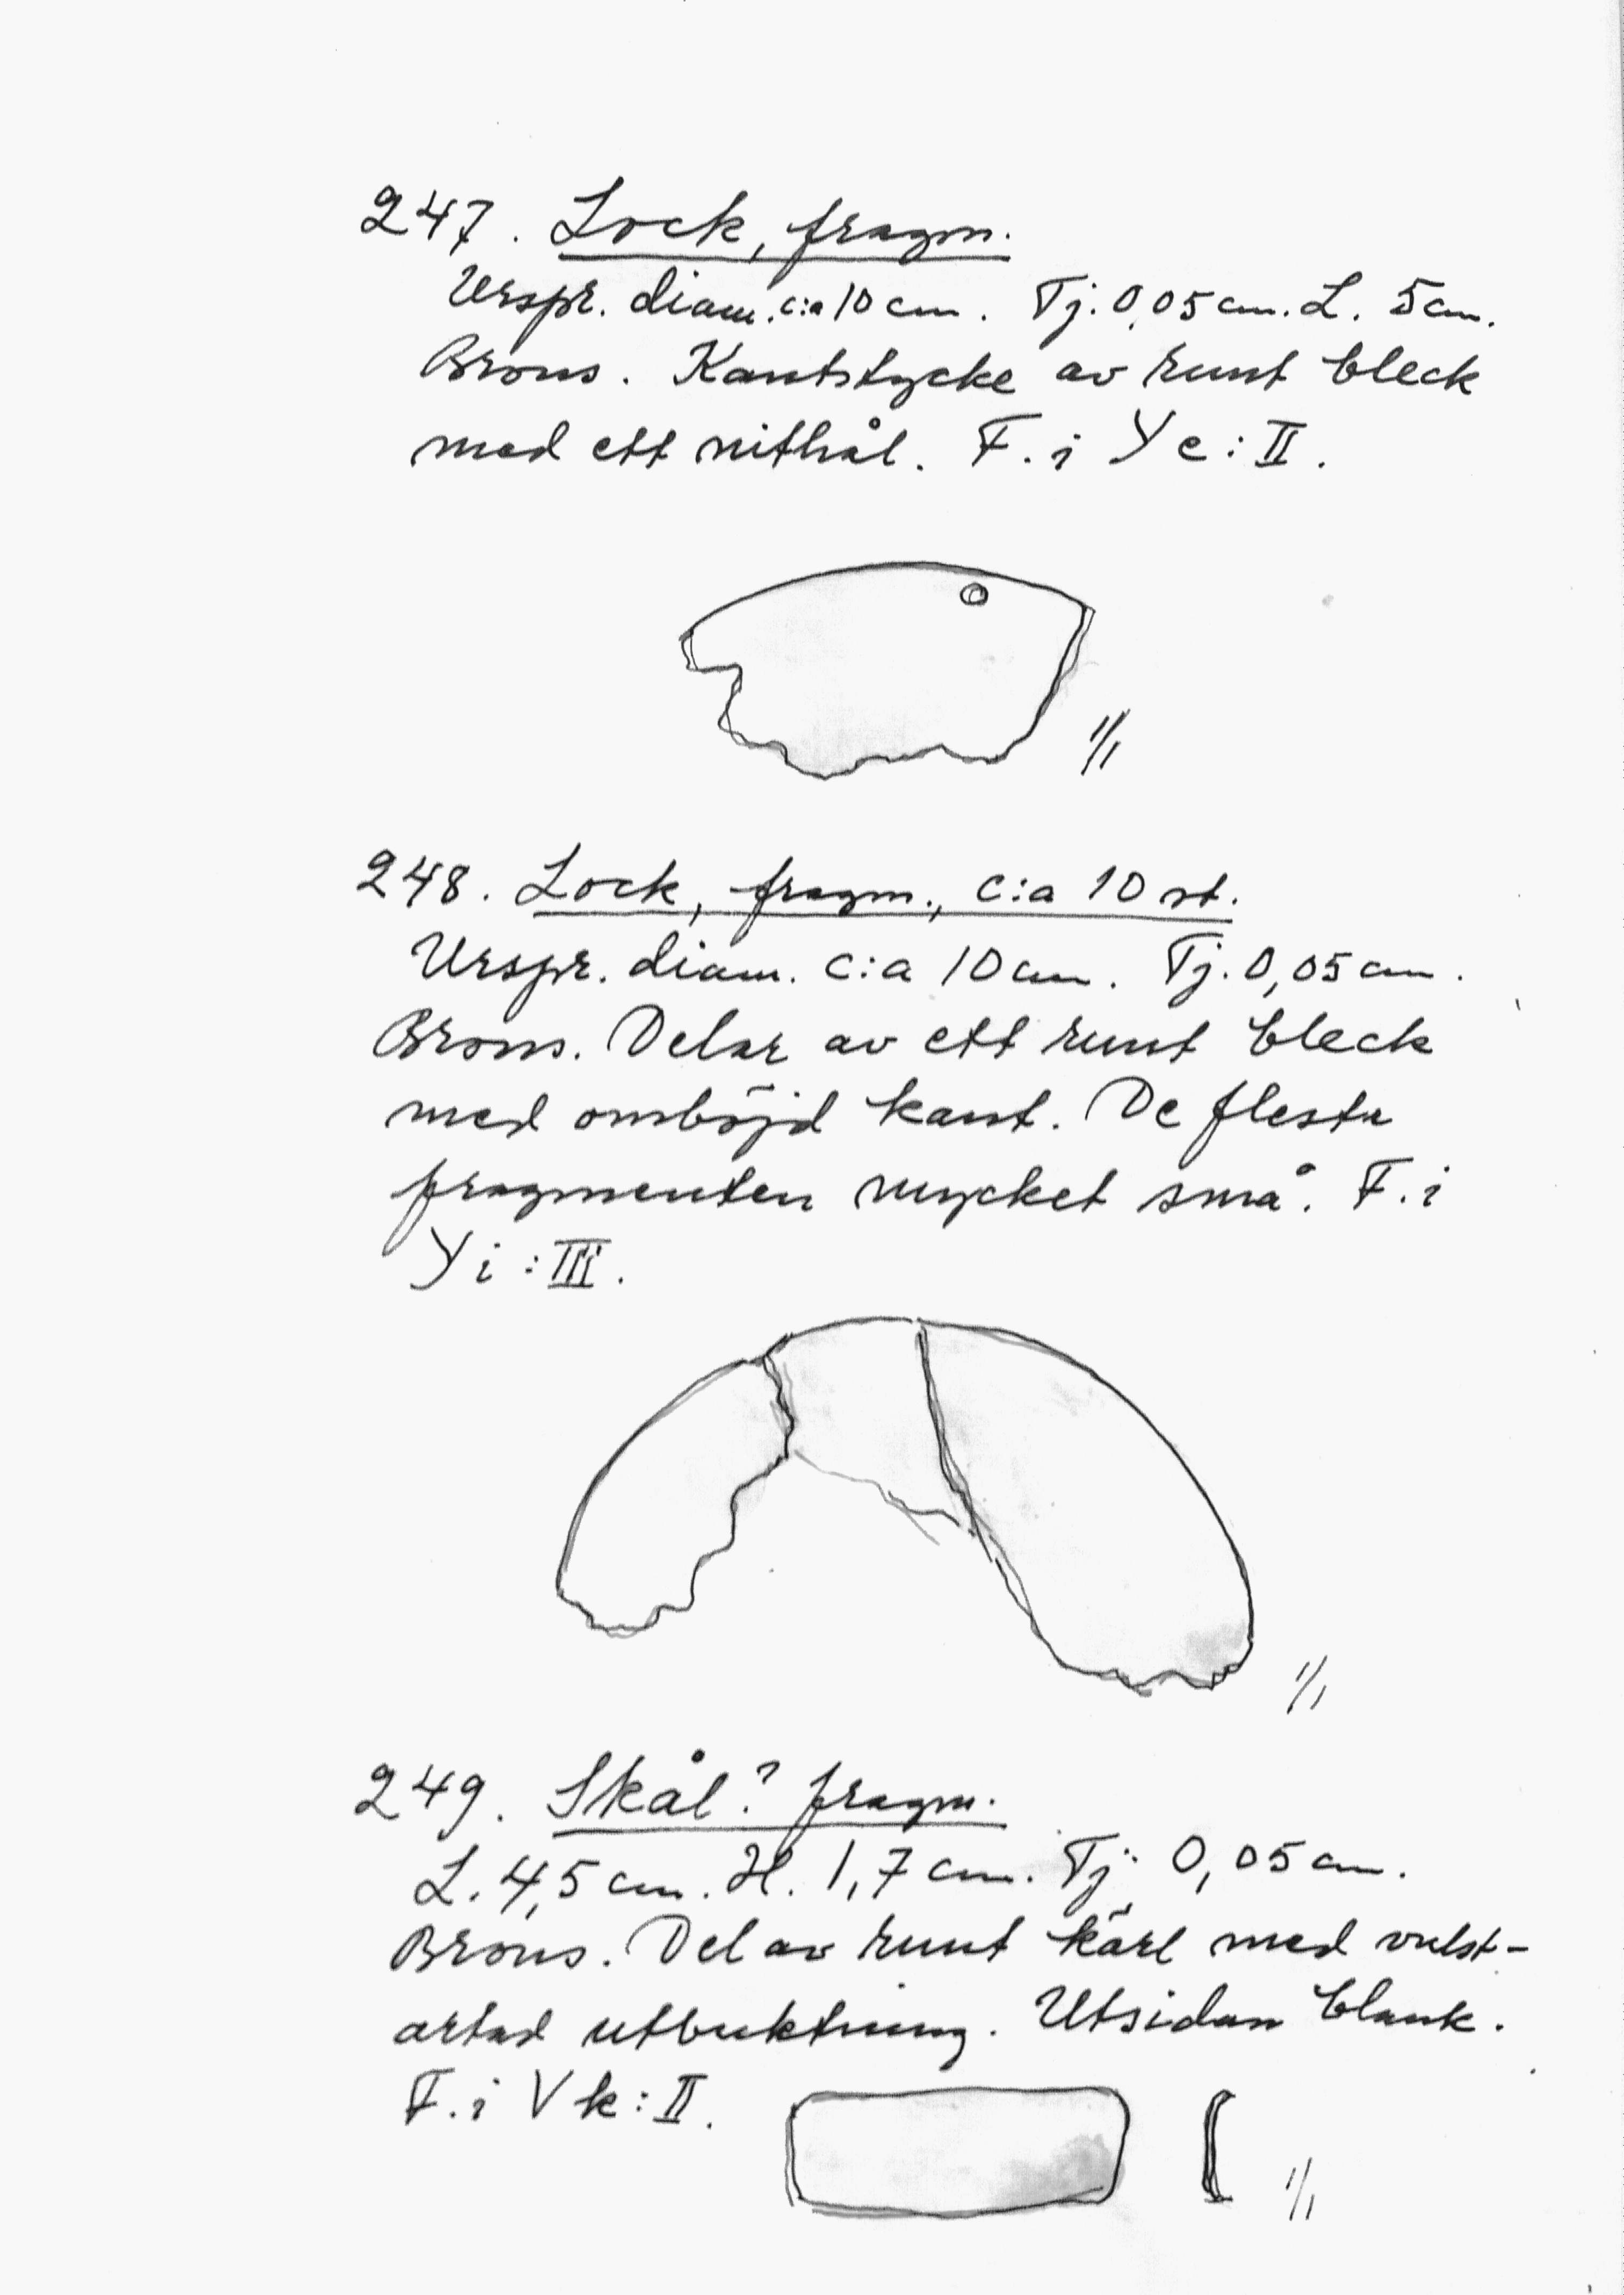 247. Lock, fragm.
Urspr. diam. c:a 10 cm. Tj. 0,05 cm. L. 5 cm.
Brons. Kantstycke av runt bleck
med ett nithål. F. i Y e : II.
1/1
248. Lock, fragm., c:a 10 st.
Urspr. diam. c:a 10 cm. Tj. 0,05 cm.
Brons. Delar av ett runt bleck
med omböjd kant. De flesta
fragmenten mycket små. F. i
Y i : III.
1/1
249. Skål? fragm.
L. 4,5 cm. H. 1,7 cm. Tj. 0,05 cm.
Brons. Del av runt kärl med vulst-
artad utbuktning. Utsidan blank.
F. i V k : II.
1/1